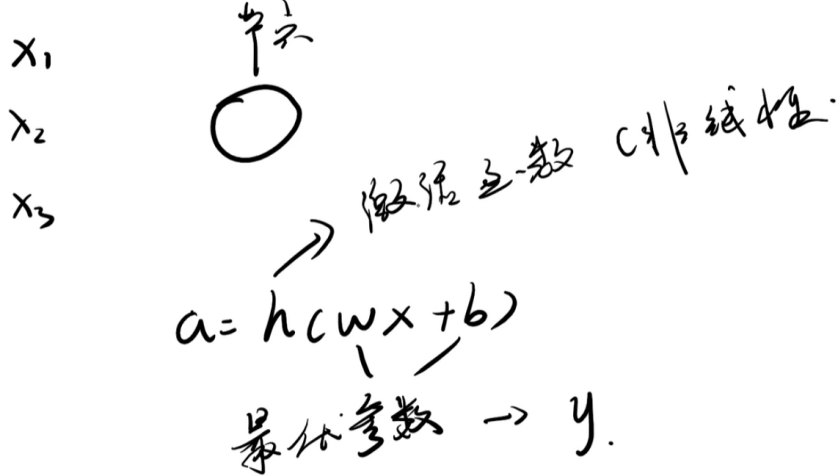 x₁
节点
x₂
x₃
激活函数 (非线性.
a = h(wx + b)
最优参数 → y.